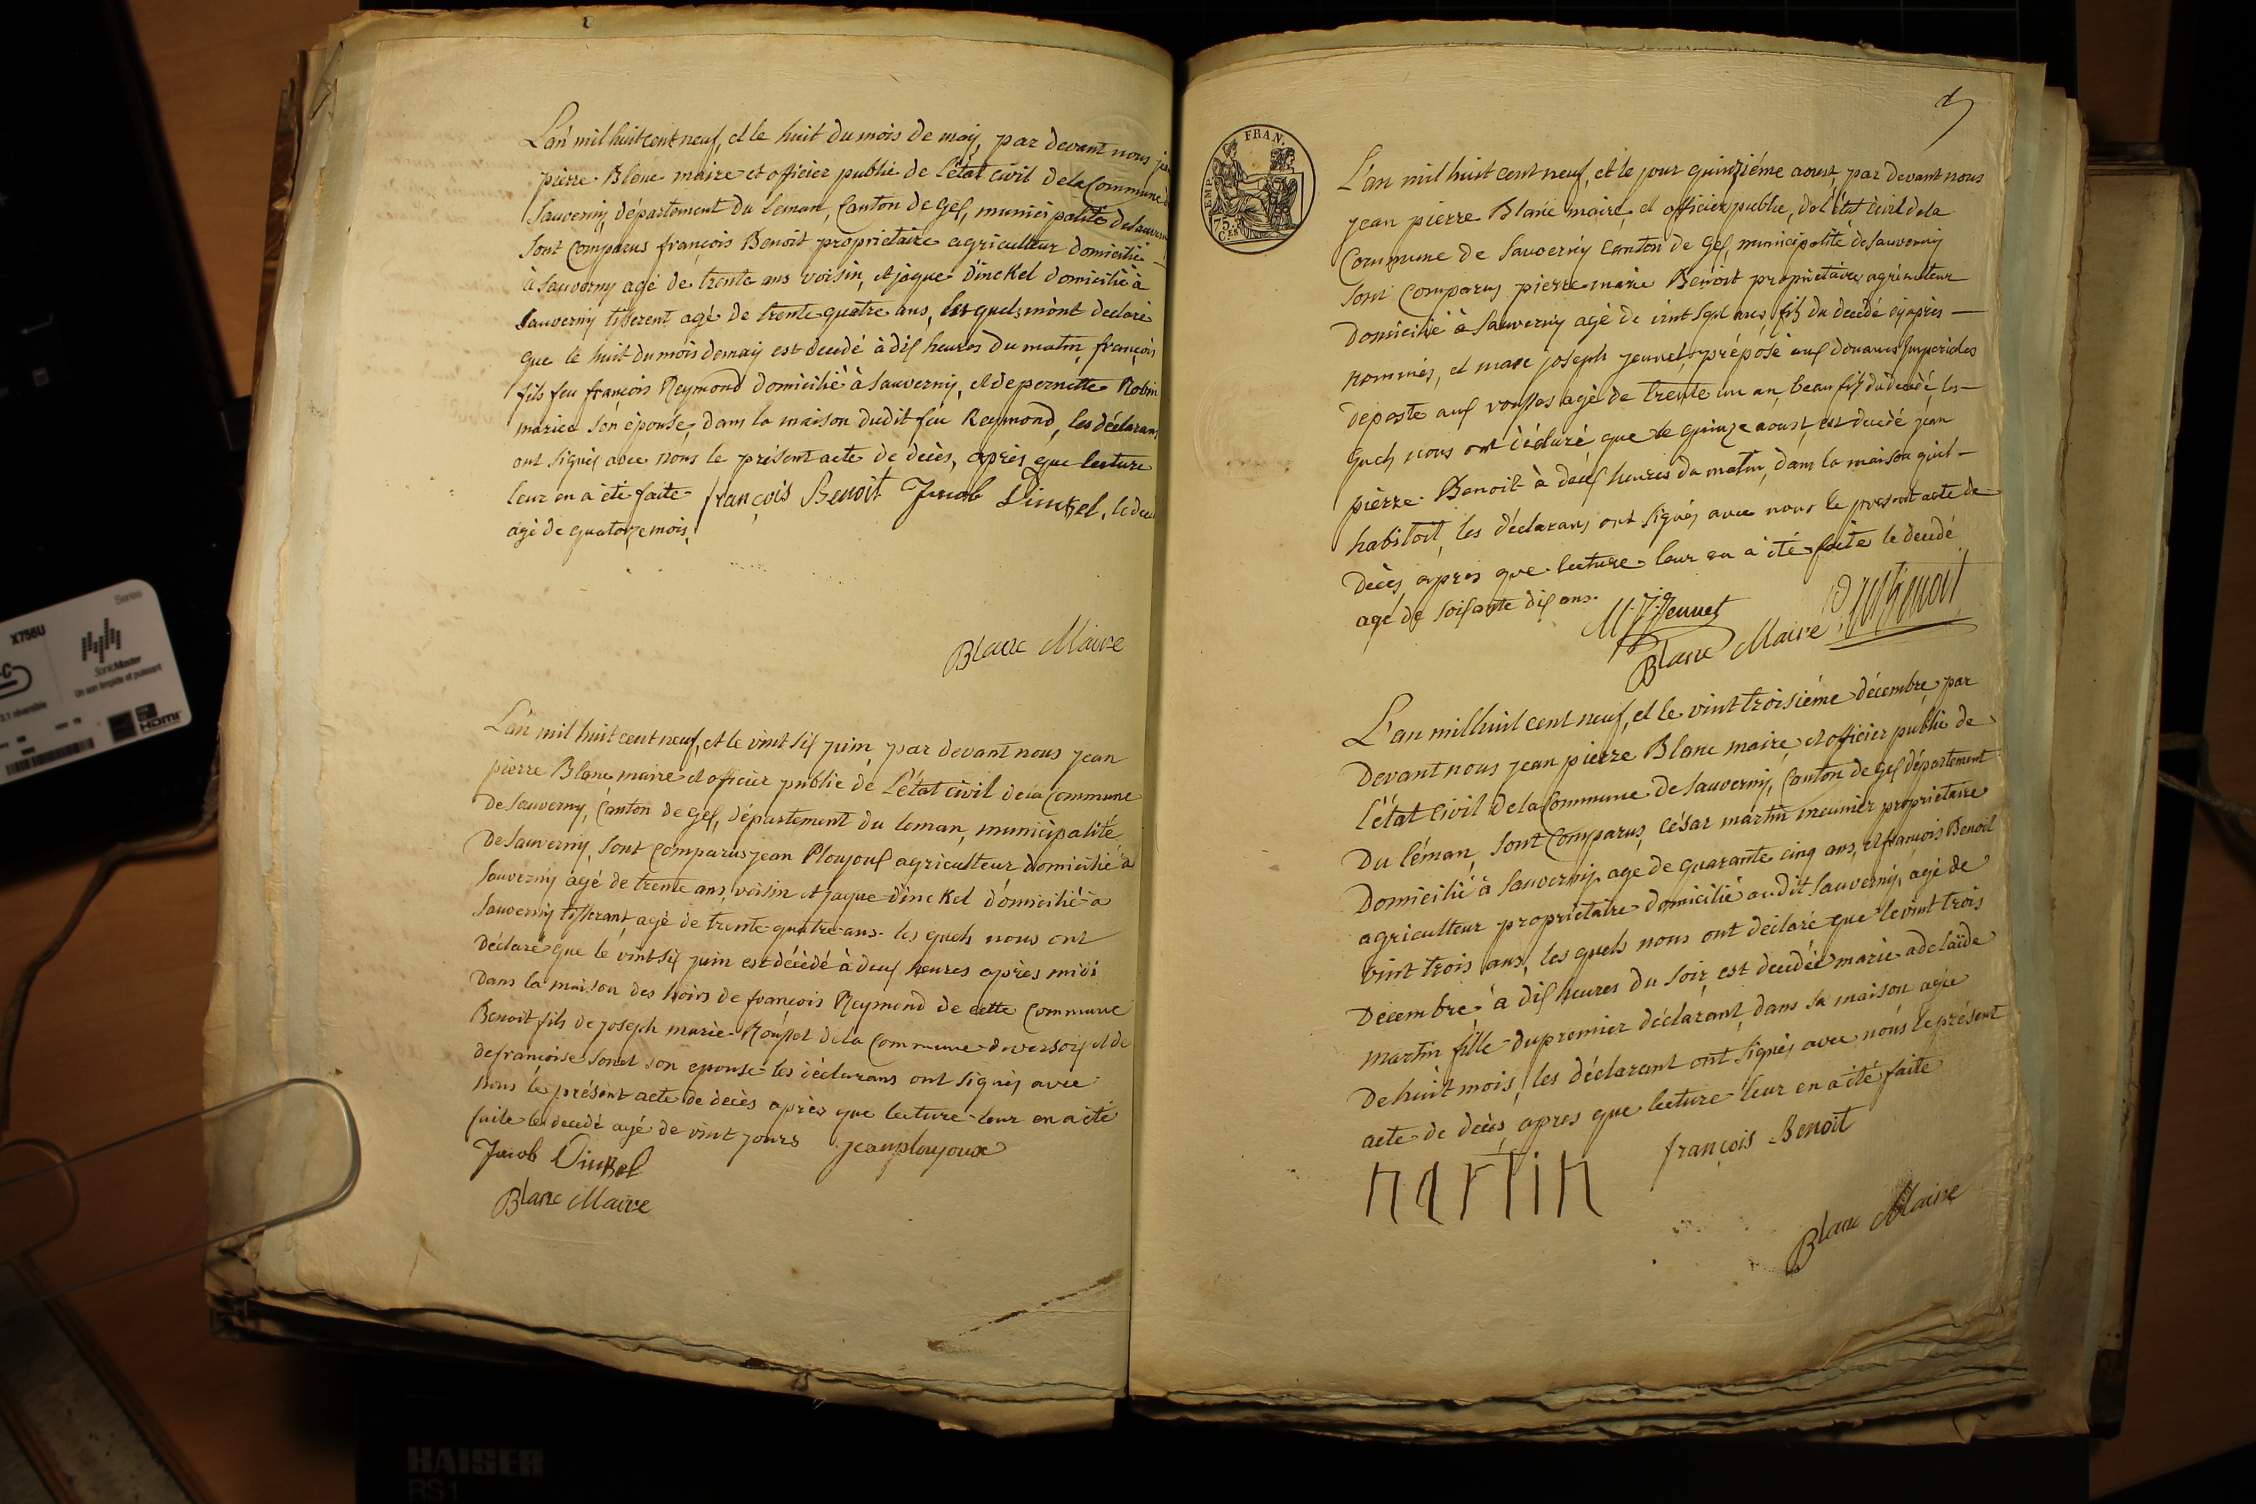 L'an mil huit cent neuf, et le huit du mois de maij, par devant nous jean
pierre Blanc maire et officier public de l'état civil de la Commune de
Sauverny, département du leman, Canton de Gex, municipalité de Sauverny
Sont Comparus françois Benoit proprietaire agriculteur domicilié
à Sauverny agé de trente ans voisin, et jaque Dinckel domicilié à
Sauverny tisserent agé de trente quatre ans, les quels m'ont declaré
que le huit du mois de maij est decedé à dix heures du matin, françois
fils feu françois Reymond domicilié à Sauverny, et de pernette Robin
mariée son épouse, dans la maison dudit feu Reymond, les déclarans
ont signés avec nous le présent acte de décès, après que lecture
leur en a été faite. françois Benoit Jacob Dinkel, le
agé de quatorze mois,
Blanc Maire
L'an mil huit cent neuf, et le vint six juin, par devant nous jean
pierre Blanc maire et officier public de L'état civil de la Commune
De Sauverny, Canton de Gex, département du leman, municipalité
De Sauverny, Sont Comparus jean Ploujoux agriculteur domicilié à
Sauverny agé de trente ans, voisin et jaque dinckel domicilié à
Sauverny tisserant, agé de trente quatre ans. les quels nous ont
Déclaré que le vint six juin est décédé à deux heures après midi
Dans la maison des hoirs de françois Reymond de cette Commune
Benoit fils de joseph marie de la Commune de versoix et de
de francoise son epouse les déclarans ont signés avec
nous le présent acte de décès après que lecture leur en a été
faite le decedé agé de vint jours jean ploujoux
Jacob Dinkel
Blanc Maire
EMP. FRAN.
75 Ces
L'an mil huit cent neuf, et le jour quinzième aoust, par devant nous
jean pierre Blanc maire et officier public, de l'état civil de la
Commune de Sauverny Canton de Gex, municipalité de Sauverny
Sont Comparus pierre marie Benoit proprietaire agriculteur
Domicilié à Sauverny agé de vint sept ans, fils du decedé cy après
nommé, et marc joseph jeunet, préposé aux douanes Imperiales
deposte aux agé de trente un an, beau fils du decedé, les
quels nous ont déclaré que le quinze aoust, est decedé jean
pierre Benoit à deux heures du matin, dans la maison qu'il
habitoit, les déclarans ont signés avec nous le present acte de
décès, apres que lecture leur en a été faite le decedé
agé de soixante dix ans.
M. J. Jeunet
Blanc Maire Benoit
L'an mil huit cent neuf, et le vint troisième décembre, par
Devant nous jean pierre Blanc maire, et officier public de
l'état Civil de la Commune de Sauverny, Canton de Gex département
Du léman, Sont Comparus, César martin meunier proprietaire
Domicilié à Sauverny age de quarante cinq ans, et françois Benoit
agriculteur propriétaire domicilié au dit Sauverny, agé de
vint trois ans, les quels nous ont déclaré que le vint trois
Décembre à dix heures du soir, est decedée marie adelaïde
martin fille du premier déclarant, dans sa maison agée
De huit mois, les déclarant ont signés avec nous le présent
acte de décès, apres que lecture leur en a été faite
françois Benoit
MARTIN
Blanc Maire
Series
X756U
SonicMaster
Un son limpide et puissant
HDMI
KAISER
RS 1